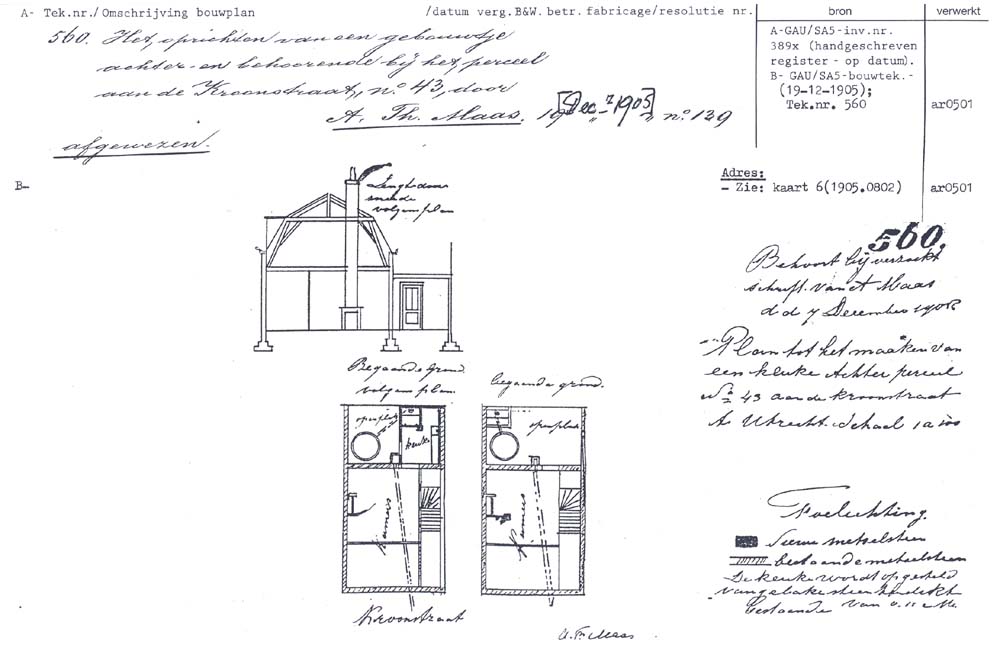 A- Tek.nr./Omschrijving bouwplan /datum verg.B&W. betr. fabricage/resolutie nr. bron verwerkt
560. Het oprichten van een gebouwtje
achter en behoorende bij het perceel
aan de Kroonstraat, no 43, door
A. Th. Maas. 19 [Dec. 1905] " no. 139
afgewezen.
A-GAU/SA5-inv.nr.
389x (handgeschreven
register - op datum).
B- GAU/SA5-bouwtek.-
(19-12-1905);
Tek.nr. 560 ar0501
Adres:
- Zie: kaart 6(1905.0802) ar0501
B-
Lengtedoor
sneede
volgens plan
560.
Behoort bij verzoek
schrift van A Maas
d d 7 December 1905
Plan tot het maaken van
een keuke Achter perceel
No 43 aan de Kroonstraat
te Utrecht. Schaal 1 a 100
Begaande Grond
volgens plan.
begaande grond.
open plaats
keuke
open plaats
Kamer
Kamer
Kroonstraat
A. Th. Maas
Toelichting.
Nieuwe metselsteen
bestaande metselsteen
De keuke wordt opgesteld
van gebakke steen ter dikte
bestaande van 0.11 Me.